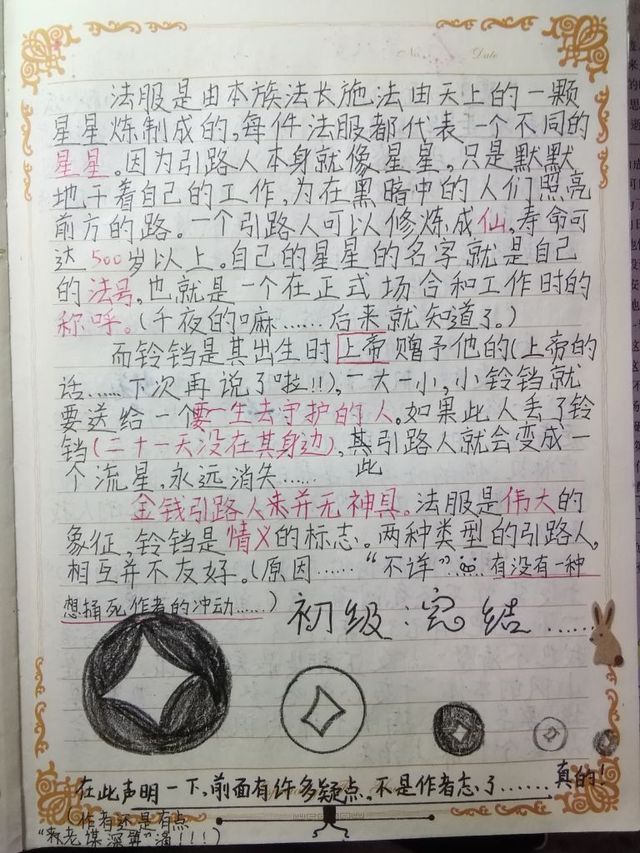 No.
Date
法服是由本族法长施法由天上的一颗
星星炼制成的,每件法服都代表一个不同的
星星。因为引路人本身就像星星,只是默默
地干着自己的工作,为在黑暗中的人们照亮
前方的路。一个引路人可以修炼成仙,寿命可
达500岁以上。自己的星星的名字就是自己
的法号,也就是一个在正式场合和工作时的
称呼。(千夜的嘛……后来就知道了。)
而铃铛是其出生时上帝赠予他的(上帝的
话……下次再说了啦!!),一大一小,小铃铛就
要送给一个要一生去守护的人。如果此人丢了铃
铛(二十一天没在其身边),其引路人就会变成一
此
个流星,永远消失……
金钱引路人来并无神具。法服是伟大的
象征,铃铛是情义的标志。两种类型的引路人,
相互并不友好。(原因……“不详”有没有一种
想捅死作者的冲动……)
初级:完结……
在此声明一下,前面有许多疑点。不是作者忘了……真的!
(作者还是有点
“老谋深算”滴!!!)